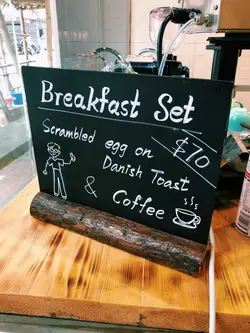 Breakfast Set
$70
Scrambled egg on
Danish Toast
& Coffee